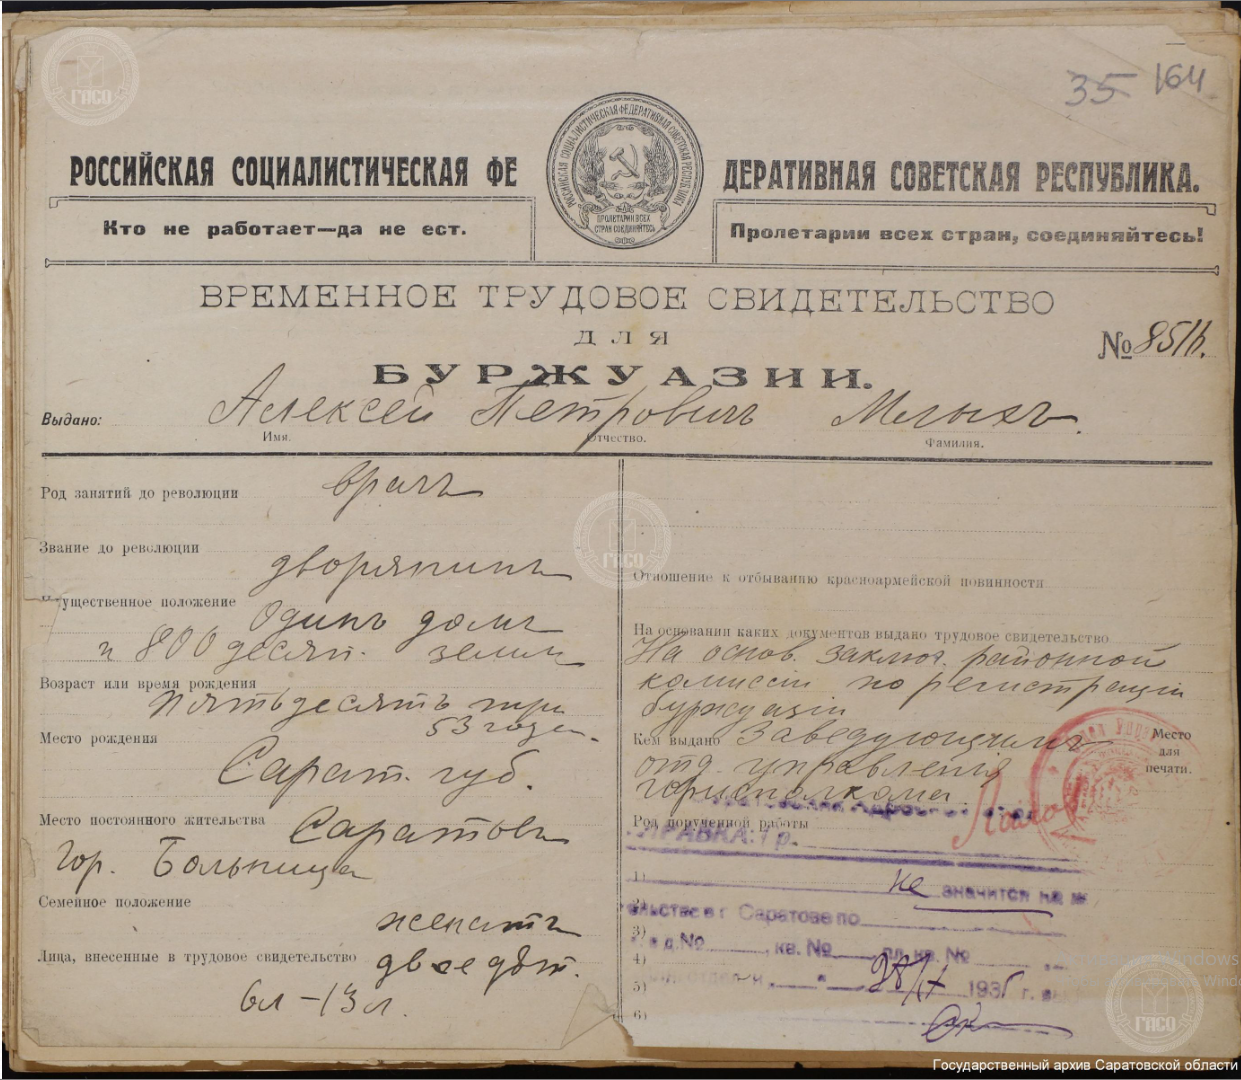 35 164
РОССИЙСКАЯ СОЦИАЛИСТИЧЕСКАЯ ФЕ ДЕРАТИВНАЯ СОВЕТСКАЯ РЕСПУБЛИКА.
РОССИЙСКАЯ СОЦИАЛИСТИЧЕСКАЯ ФЕДЕРАТИВНАЯ СОВЕТСКАЯ РЕСПУБЛИКА
ПРОЛЕТАРИИ ВСЕХ
СТРАН СОЕДИНЯЙТЕСЬ
Кто не работает—да не ест.
Пролетарии всех стран, соединяйтесь!
ВРЕМЕННОЕ ТРУДОВОЕ СВИДЕТЕЛЬСТВО
ДЛЯ
№ 851
БУРЖУАЗИИ.
Выдано: Алексей Петровичъ
Имя. Отчество. Фамилия.
Род занятий до революции врачъ
Звание до революции
дворянинъ
ущественное положение Одинъ домъ
и 800 десят. земли
Возраст или время рождения
пятьдесятъ три
53 года.
Место рождения
Сарат. губ.
Место постоянного жительства Саратовъ
Гор. Больница
Семейное положение
женатъ
Лица, внесенные в трудовое свидетельство двое дѣт.
6л – 13 л.
Отношение к отбыванию красноармейской повинности
На основании каких документов выдано трудовое свидетельство
На основ. заключ. районной
комиссіи по регистраціи
буржуазіи
Кем выдано Заведующимъ
отд. управленія
горисполкома.
Место
для
печати.
Род порученной работы
ПРАВКА: 1 р.
1)
не значится на
2)
ельстве в г Саратове по
3)
д. № , кв. №
4)
5)
28/IX 1935 г.
6)
ГАСО
ГАСО
ГАСО
Государственный архив Саратовской области